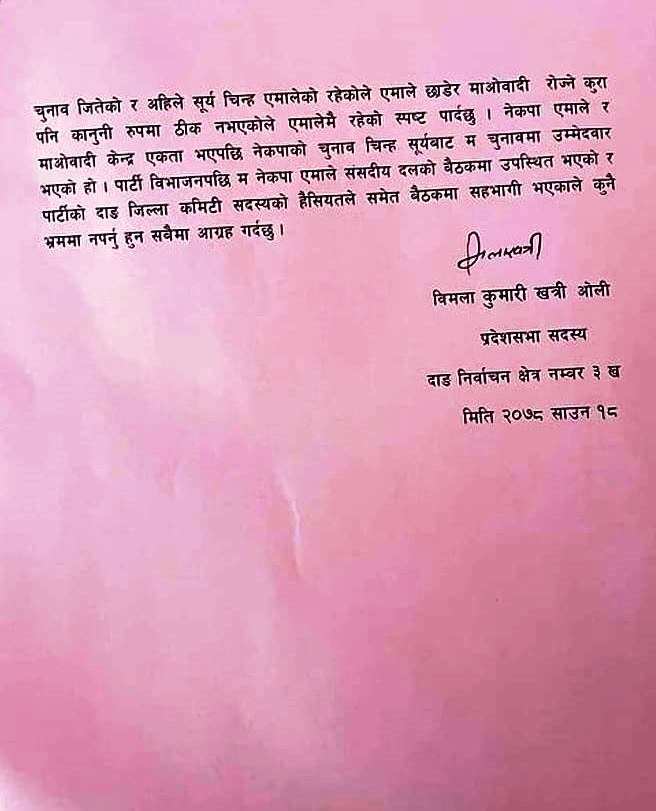 चुनाव जितेको र अहिले सूर्य चिन्ह एमालेको रहेकोले एमाले छाडेर माओवादी रोज्ने कुरा
पनि कानुनी रुपमा ठीक नभएकोले एमालेमै रहेको स्पष्ट पार्दछु । नेकपा एमाले र
माओवादी केन्द्र एकता भएपछि नेकपाको चुनाव चिन्ह सूर्यबाट म चुनावमा उम्मेदवार
भएको हो । पार्टी विभाजनपछि म नेकपा एमाले संसदीय दलको बैठकमा उपस्थित भएको र
पार्टीको दाङ जिल्ला कमिटी सदस्यको हैसियतले समेत बैठकमा सहभागी भएकाले कुनै
भ्रममा नपर्नु हुन सवैमा आग्रह गर्दछु ।
विमला कुमारी खत्री ओली
प्रदेशसभा सदस्य
दाङ निर्वाचन क्षेत्र नम्वर ३ ख
मिति २०७८ साउन १८